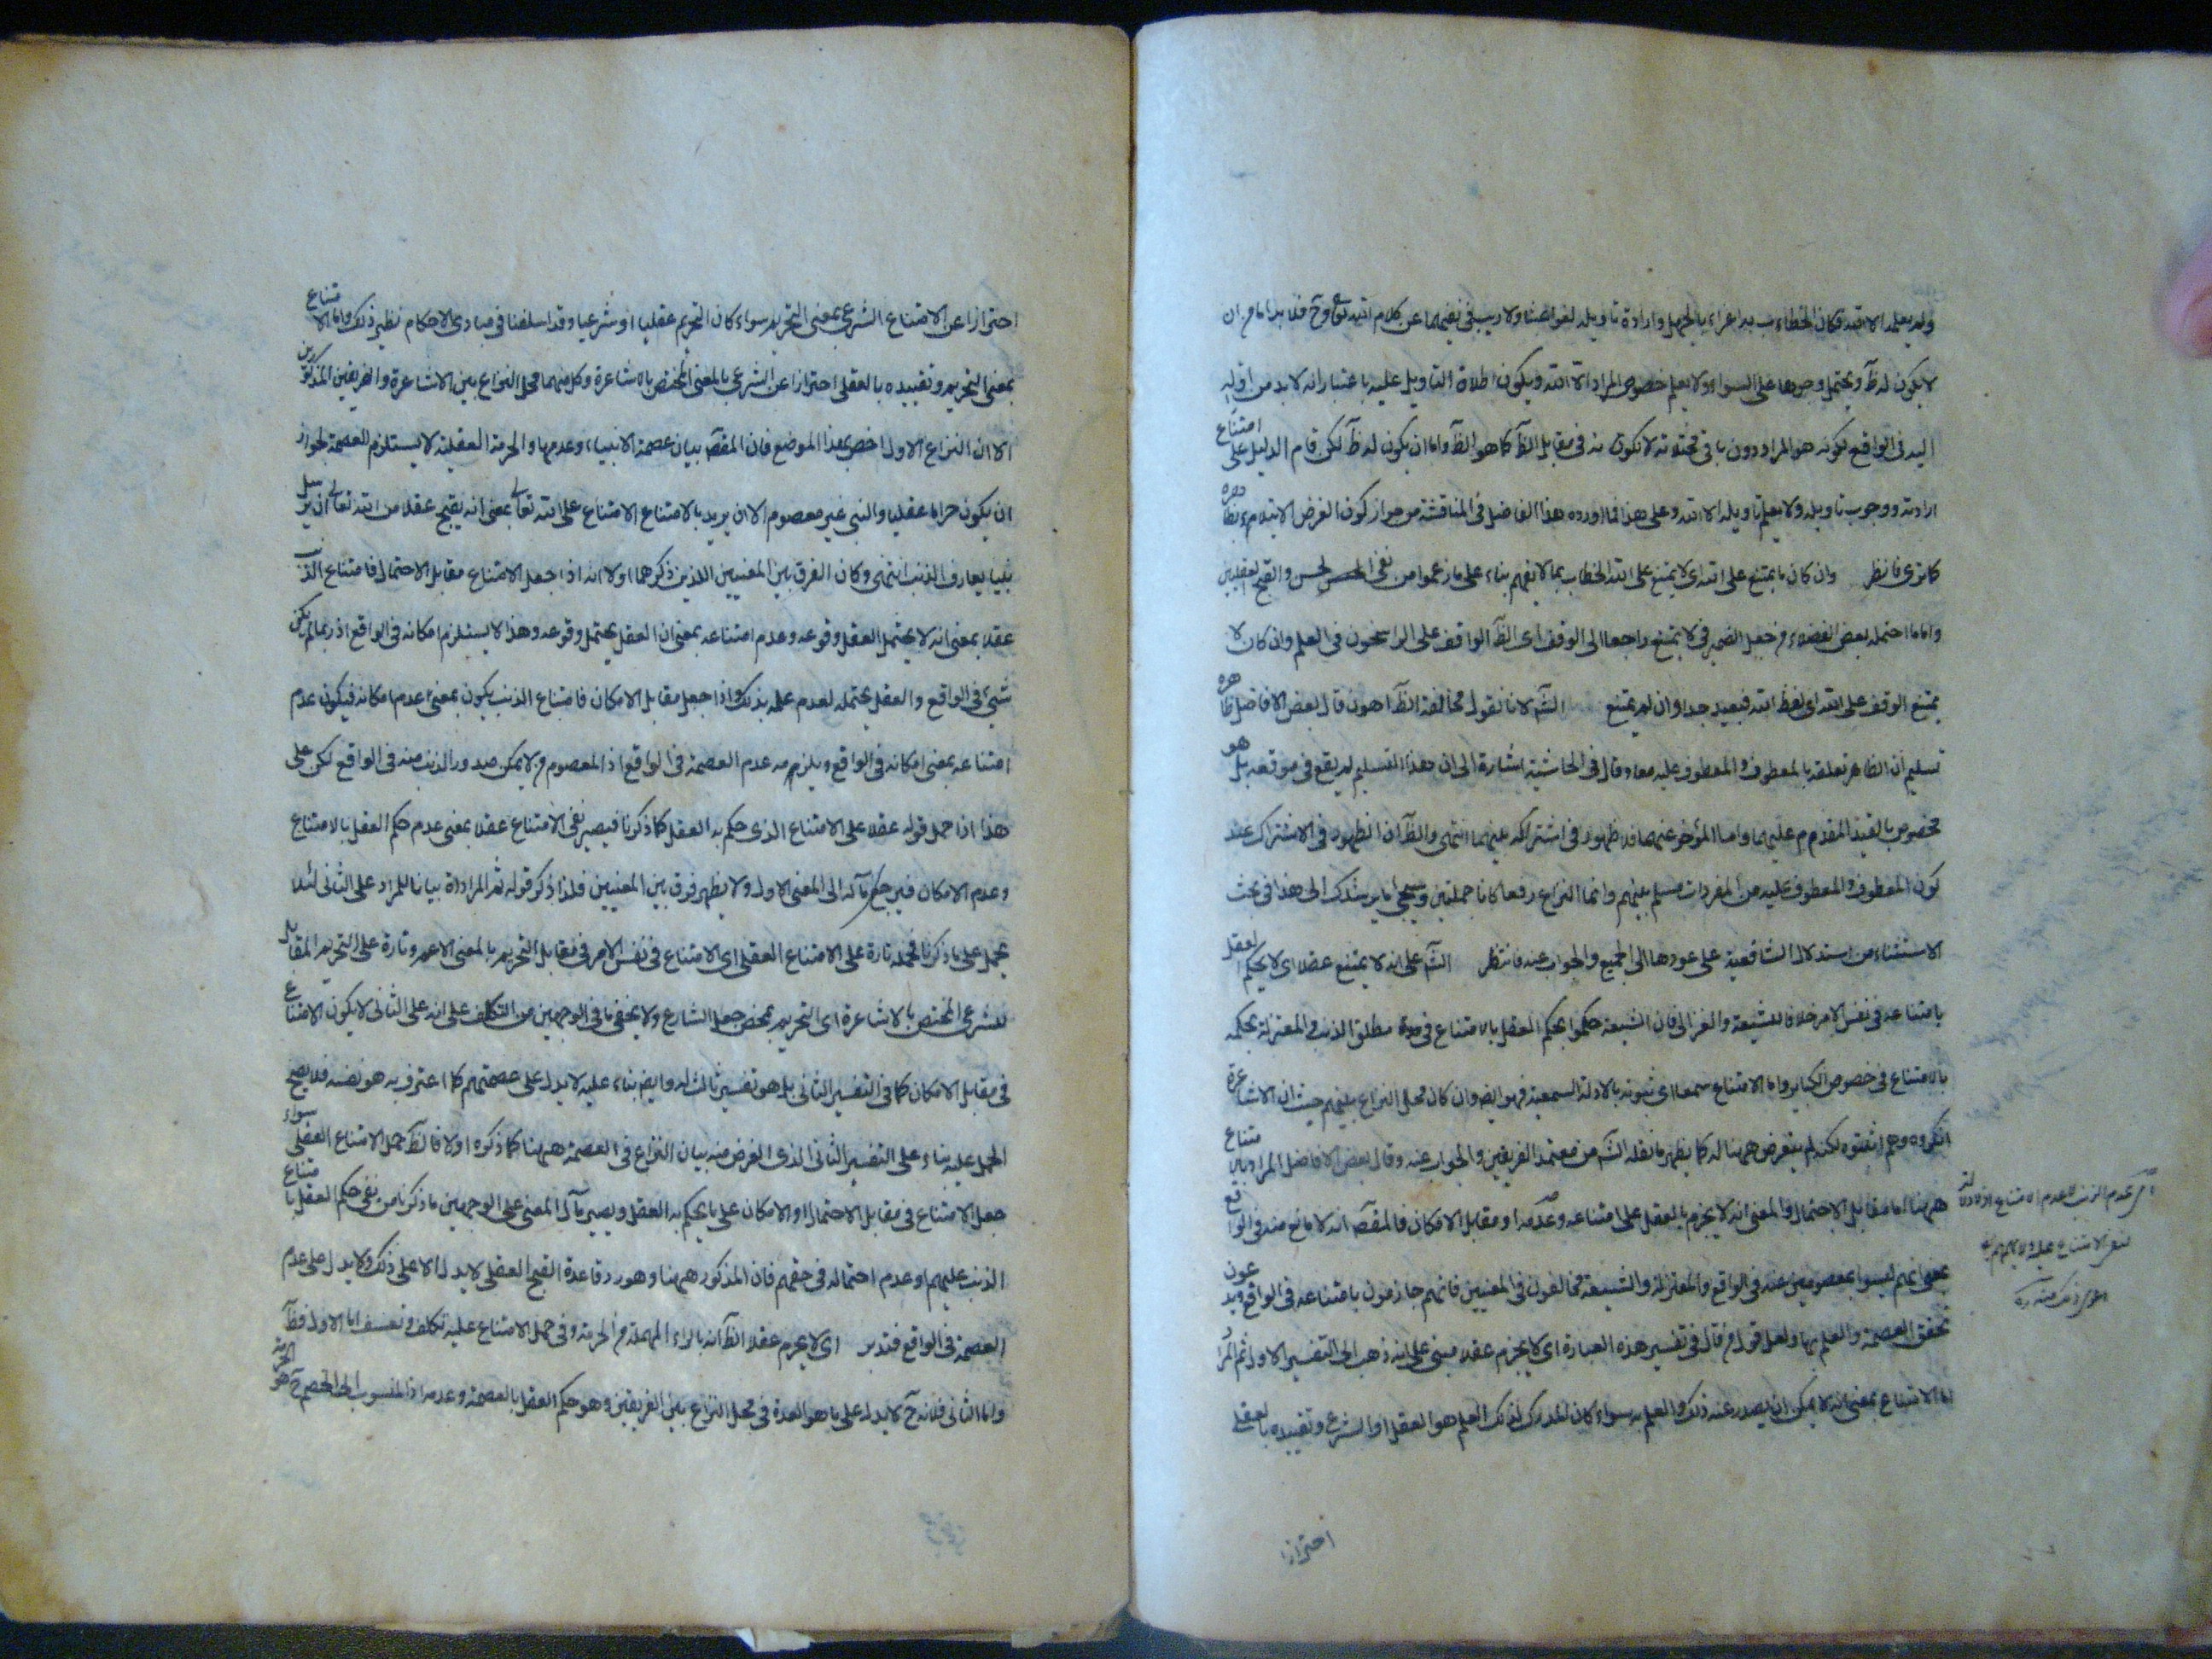 ولم يعلمه الا الله فكان الخطاب به اغراء بالجهل وارادة تأويله لغوا ولا ريب في نفيهما عن كلام الله تع وح فلا بد اما من ان
لا يكون له ظ ويحتمل وجوها على السواء ولا يعلم خصوص المراد الا الله ويكون اطلاق التأويل عليه باعتبار انه لا بد من اوله
اليه في الواقع لكونه هو المراد دون باقي محتملاته لا لكونه في مقابل الظ كما هو الظ واما ان يكون له ظ لكن قام الدليل على امتناع
ارادته ووجوب تأويله ولا يعلم تأويله الا الله وعلى هذا فما اورده هذا الفاضل في المناقشة من جواز كون الغرض الابتلاء
كما ترى فانظر وان كان ما يمتنع على الله اى لا يمتنع على الله الخطاب بما لا يفهم بناء على ما زعموا من نفى الحسن والقبح العقليين
واما ما احتمله بعض الفضلاء من جعل الضمير في لا يمتنع راجعا الى الوقف اى الظ الوقف على الراسخون في العلم وان كان لا
يمتنع الوقف على الله اى لفظ الله فبعيد جدا وان لم يمتنع الش لانا نقول مخالفة الظ اهون قال بعض الافاضل ظاهره
تسليم ان الظاهر تعلقه بالمعطوف والمعطوف عليه معا وقال في الحاشية اشارة الى ان هذا التسليم لم يقع في موقعه بل هو
مخصوص بالقيد المقدم عليهما واما المؤخر عنهما فلا ظهور في اشتراكه بينهما انتهى والظ ان الظهور في الاشتراك عند
كون المعطوف والمعطوف عليه من المفردات مسلم بينهم وانما النزاع فيما كانا جملتين وسيجئ ما يرشدك الى هذا في بحث
الاستثناء من استدلال الشافعية على عودها الى الجميع والجواب عنه فانتظر الش على انه لا يمتنع عقلا اى لا يحكم العقل
بامتناعه في نفس الامر خلافا للشيعة والغزالى فان الشيعة حكموا بحكم العقل بالامتناع في مطلق الذنب والمعتزلة بحكمه
بالامتناع في خصوص الكباير واما الامتناع سمعا اى ثبوته بالادلة السمعية فهو ايض وان كان محل النزاع بينهم حيث ان الاشاعرة
انكروه وهم اثبتوه لكنه لم يتعرض ههنا له كما يظهر ما نقله الش من معتمد الفريقين والجواب عنه وقال بعض الافاضل المراد بالامتناع
ههنا اما مقابل الاحتمال والمعنى انه لا يجزم العقل على امتناعه وعدمه او مقابل الامكان فالمقص انه لا مانع منه في الواقع
بمعنى انهم ليسوا بمعصومين عنه في الواقع والمعتزلة والشيعة مخالفون في المعنيين فانهم جازمون بامتناعه في الواقع ويدعون
تحقق العصمة والعلم بها ولعل قوله قال في تفسير هذه العبارة اى لا يجزم عقلا مبنى على انه ذهب الى التفسير الاول ثم المراد
اما الامتناع بمعنى انه لا يمكن ان يصدر عنه ذلك والعلم به سواء كان المدرك لذلك العلم هو العقل او الشرع وتقييده بالعقلى
احترازا
احترازا عن الامتناع الشرعى بمعنى التحريم سواء كان التحريم عقليا او شرعيا وقد اسلفنا في مبادى الاحكام نظير ذلك واما الامتناع
بمعنى التحريم وتقييده بالعقلى احترازا عن الشرعى بالمعنى المختص بالاشاعرة وكل منهما محل النزاع بين الاشاعرة والفريقين المذكورين
الا ان النزاع الاول اخص بهذا الموضع فان المقص بيان عصمة الانبياء وعدمها والحرمة العقلية لا يستلزم العصمة لجواز
ان يكون حراما عقليا والنبى غير معصوم الا ان يريد بالامتناع الامتناع على الله تعالى بمعنى انه يقبح عقلا من الله تعالى ان يرسل
نبيا يعارف الذنب انتهى وكان الفرق بين المعنيين اللذين ذكرهما اولا انه اذا جعل الامتناع مقابل الاحتمال فامتناع الذنب
عقلا بمعنى انه لا يحتمل العقل وقوعه وعدم امتناعه بمعنى ان العقل يحتمل وقوعه وهذا لا يستلزم امكانه في الواقع اذ ربما لم يكن
شىء في الواقع والعقل يحتمله لعدم علمه بذلك واذا جعل مقابل الامكان فامتناع الذنب يكون بمعنى عدم امكانه فيكون عدم
امتناعه بمعنى امكانه في الواقع ويلزمه عدم العصمة في الواقع اذ المعصوم لا يمكن صدور الذنب منه في الواقع لكن على
هذا اذا حمل قوله عقلا على الامتناع الذى حكم به العقل كما ذكرنا فيصير نفى الامتناع عقلا بمعنى عدم حكم العقل بالامتناع
وعدم الامكان فيرجع مآله الى المعنى الاول ولا يظهر فرق بين المعنيين فلذا ذكر قوله ثم المراد اه بيانا للمراد على الثانى لئلا
يحمل على ما ذكرنا فحمله تارة على الامتناع العقلى اى الامتناع في نفس الامر في مقابل التحريم بالمعنى الاعم وتارة على التحريم المقابل
للشرعى المختص بالاشاعرة اى التحريم بمحض جعل الشارع ولا يخفى ما في الوجهين من التكلف على انه على الثانى لا يكون الامتناع
في مقابل الامكان كما في التفسير الثانى بل هو تفسير ثالث له وايض بناء عليه لا يدل على عصمتهم كما اعترف به هو نفسه فلا يصح
الحمل عليه بناء على التفسير الثانى الذى الغرض منه بيان النزاع في العصمة ههنا كما ذكره اولا فالظ حمل الامتناع العقلى سواء
جعل الامتناع في مقابل الاحتمال او الامكان على ما يحكم به العقل ويصير مآل المعنى على الوجهين ما ذكرنا من نفى حكم العقل بامتناع
الذنب عليهم او عدم احتماله في حقهم فان المذكور ههنا وهو رد قاعدة القبح العقلى لا يدل الا على ذلك ولا يدل على عدم
العصمة في الواقع فتدبر اى لا يحرم عقلا الظ انه بالراء المهملة من الحرمة وفى حمل الامتناع عليه تكلف وتعسف اما الاول فظ
واما الثانى فلانه ح لا يدل على ما هو العمدة في محل النزاع بين الفريقين وهو حكم العقل بالعصمة وعدمه اذ المنسوب الى الخصم ح هو الحرمة